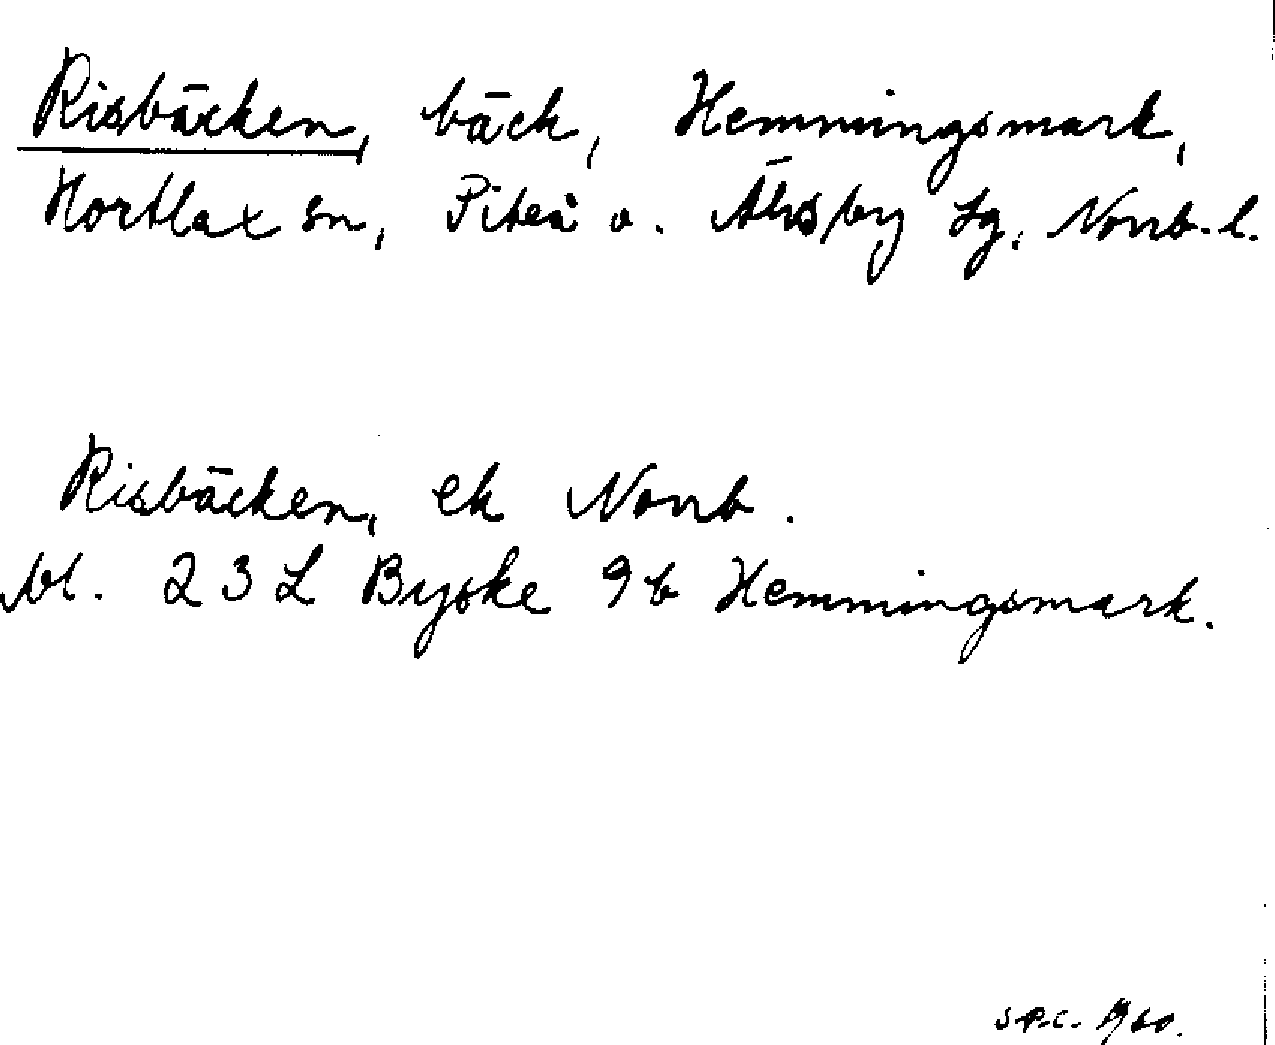 Risbäcken, bäck, Hemmingsmark,
Hortlax sn, Piteå o. Älvsby tg, Norrb. l.
Risbäcken, ek Norrb.
bl. 23L Byske 9b Hemmingsmark.
1960.